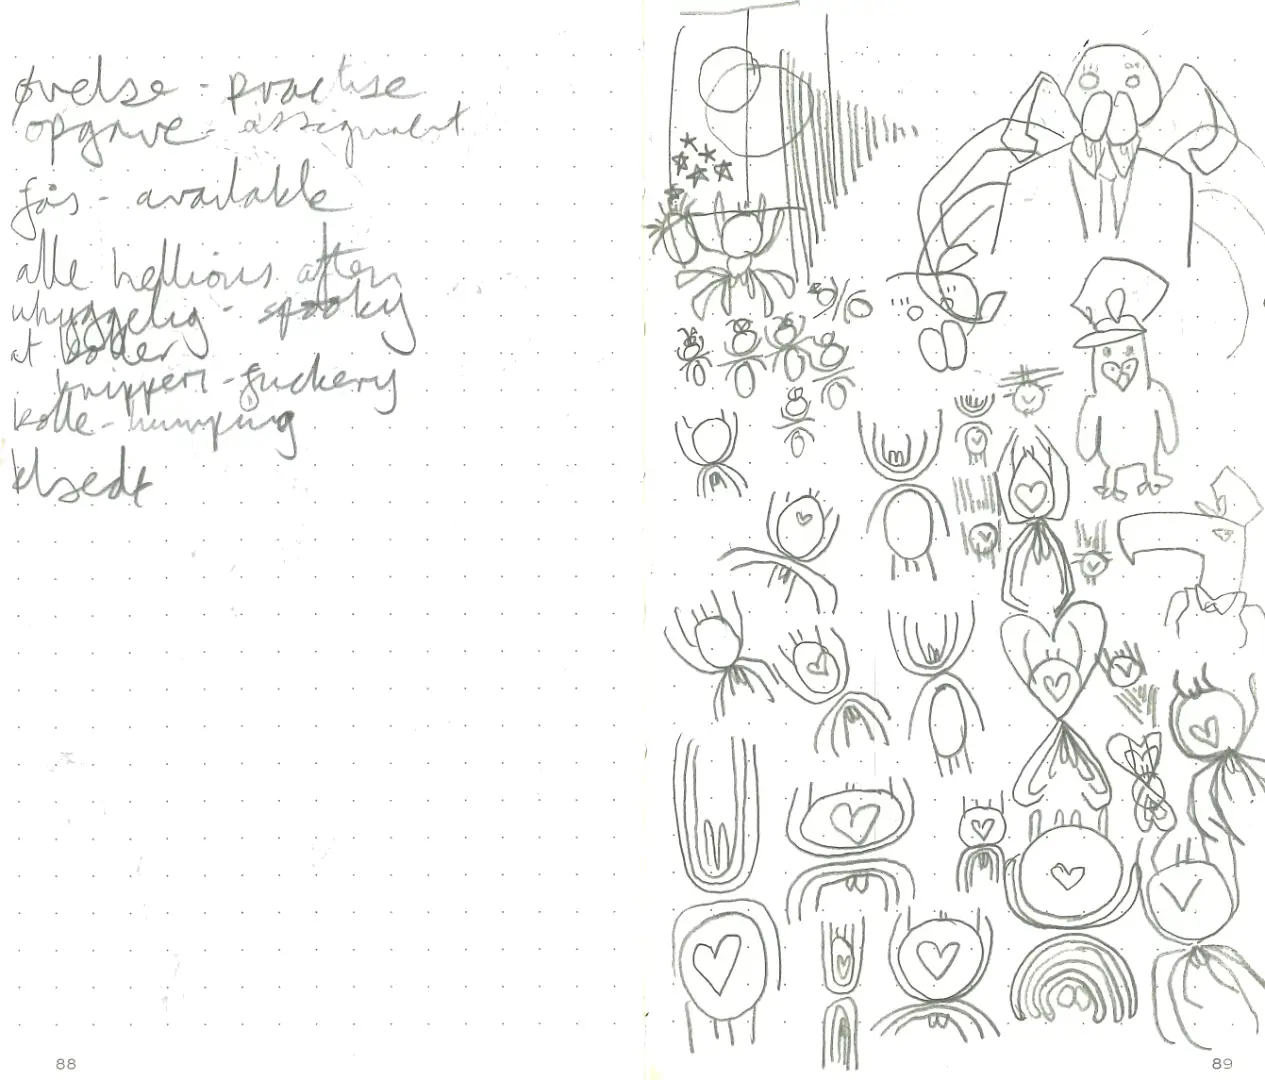 øvelse - practise
opgave - assignment
fås - available
alle helligens aften
uhyggelig - spooky
at boller
knipperi - fuckery
kolle - humping
klædt
88
89